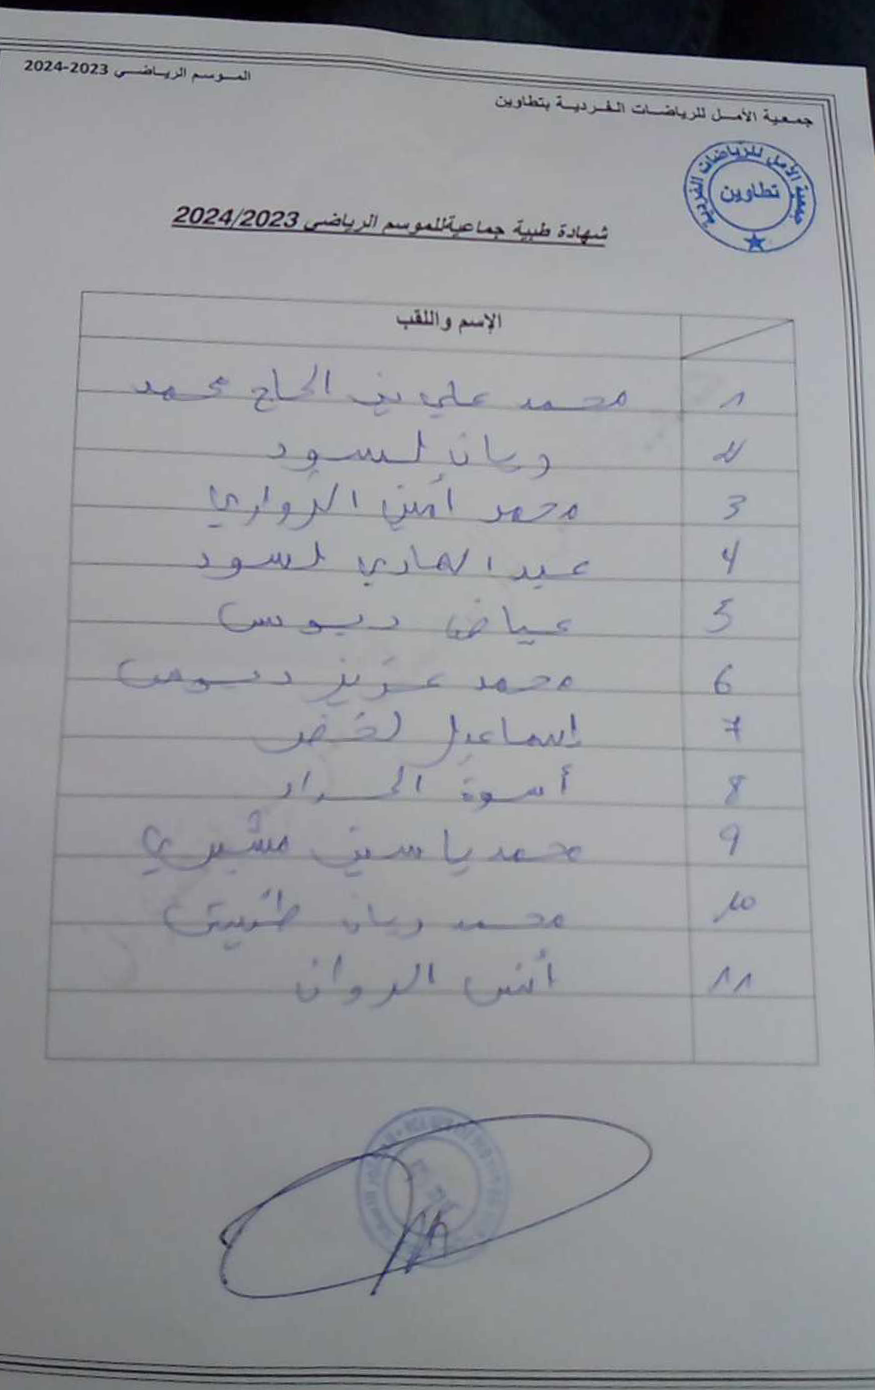 الموسم الرياضي 2023-2024
جمعية الأمل للرياضات الفردية بتطاوين
جمعية الأمل للرياضات الفردية
تطاوين
شهادة طبية جماعيةللموسم الرياضي 2024/2023
الإسم واللقب
1 محمد علي بن الحاج محمد
2 ريان لسود
3 محمد أمين الزواري
4 عبد الهادي لسود
5 عياض دبوس
6 محمد عزيز دبوس
7 إسماعيل لخضر
8 أسوة الحداد
9 محمد ياسين مشيري
10 محمد ريان
11 أنس